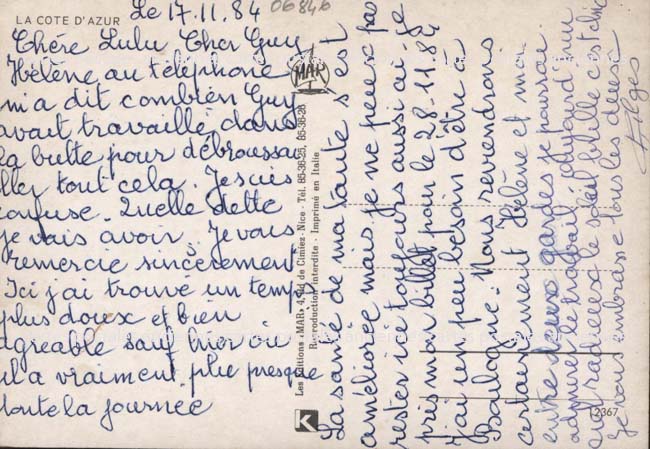 LA COTE D'AZUR
Le 17.11.84
06846
Chère Lulu Cher Guy
Hélène au téléphone
m'a dit combien Guy
avait travaillé dans
la butte pour débroussai
ller tout cela. Je suis
confuse. Quelle dette
je vais avoir. Je vous
remercie sincèrement
Ici j'ai trouvé un temps
plus doux et bien
agréable sauf hier où
il a vraiment plu presque
toute la journée
La santé de ma tante s'est
améliorée mais je ne peux pas
rester ici toujours aussi ai-je
pris mon billet pour le 28-11-84
J'ai un peu besoin d'être à
Boulogne. Nous reviendrons
certainement Hélène et moi
entre deux gardes je pourrai
admirer le travail. Aujourd'hui
radieux le soleil brille
Je vous embrasse tous les deux
MAR
Les Editions «MAR» 4, Bd de Cimiez - Nice - Tél. 85-36-25, 85-36-26
Reproduction interdite - Imprimé en Italie
K
2367